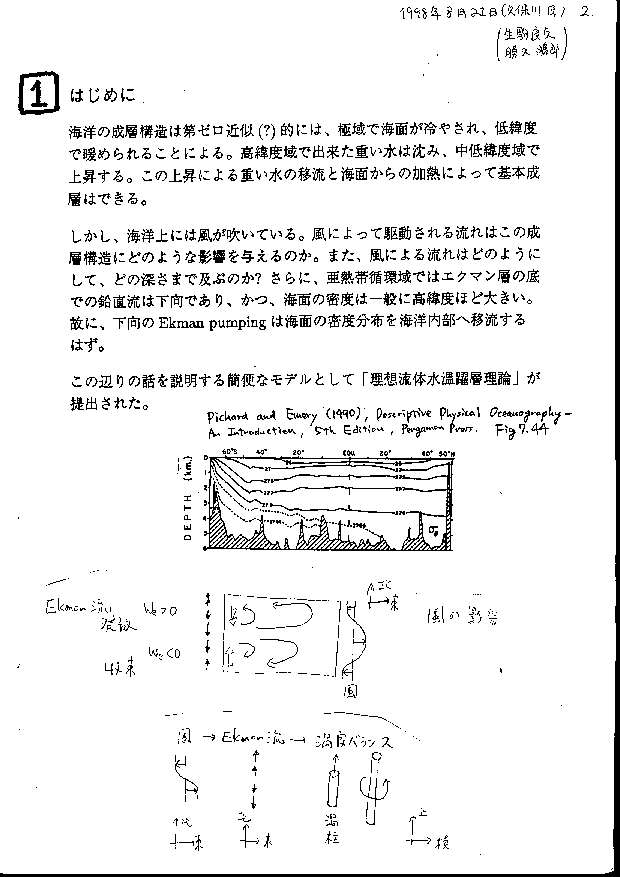 1998年8月21日(久保川 氏) 2.
(生駒良友
勝又 鴻郎)
1 はじめに
海洋の成層構造は第ゼロ近似 (?) 的には、極域で海面が冷やされ、低緯度
で暖められることによる。高緯度域で出来た重い水は沈み、中低緯度域で
上昇する。この上昇による重い水の移流と海面からの加熱によって基本成
層はできる。
しかし、海洋上には風が吹いている。風によって駆動される流れはこの成
層構造にどのような影響を与えるのか。また、風による流れはどのように
して、どの深さまで及ぶのか? さらに、亜熱帯循環域ではエクマン層の底
での鉛直流は下向であり、かつ、海面の密度は一般に高緯度ほど大きい。
故に、下向の Ekman pumping は海面の密度分布を海洋内部へ移流する
はず。
この辺りの話を説明する簡便なモデルとして「理想流体水温躍層理論」が
提出された。
Pichard and Emery (1990), Descriptive Physical Oceanography -
An Introduction, 5th Edition, Pergamon Press. Fig 7.44
60°S 40° 20° EQU. 20° 40° 50°N
DEPTH (km.)
0
1
2
3
4
5
27
σθ
Ekman 流い We>0
発散
収束 We<0
北
東
風
風の影響
風 → Ekman 流 → 渦度バランス
北
東
北
東
渦
柱
上
横